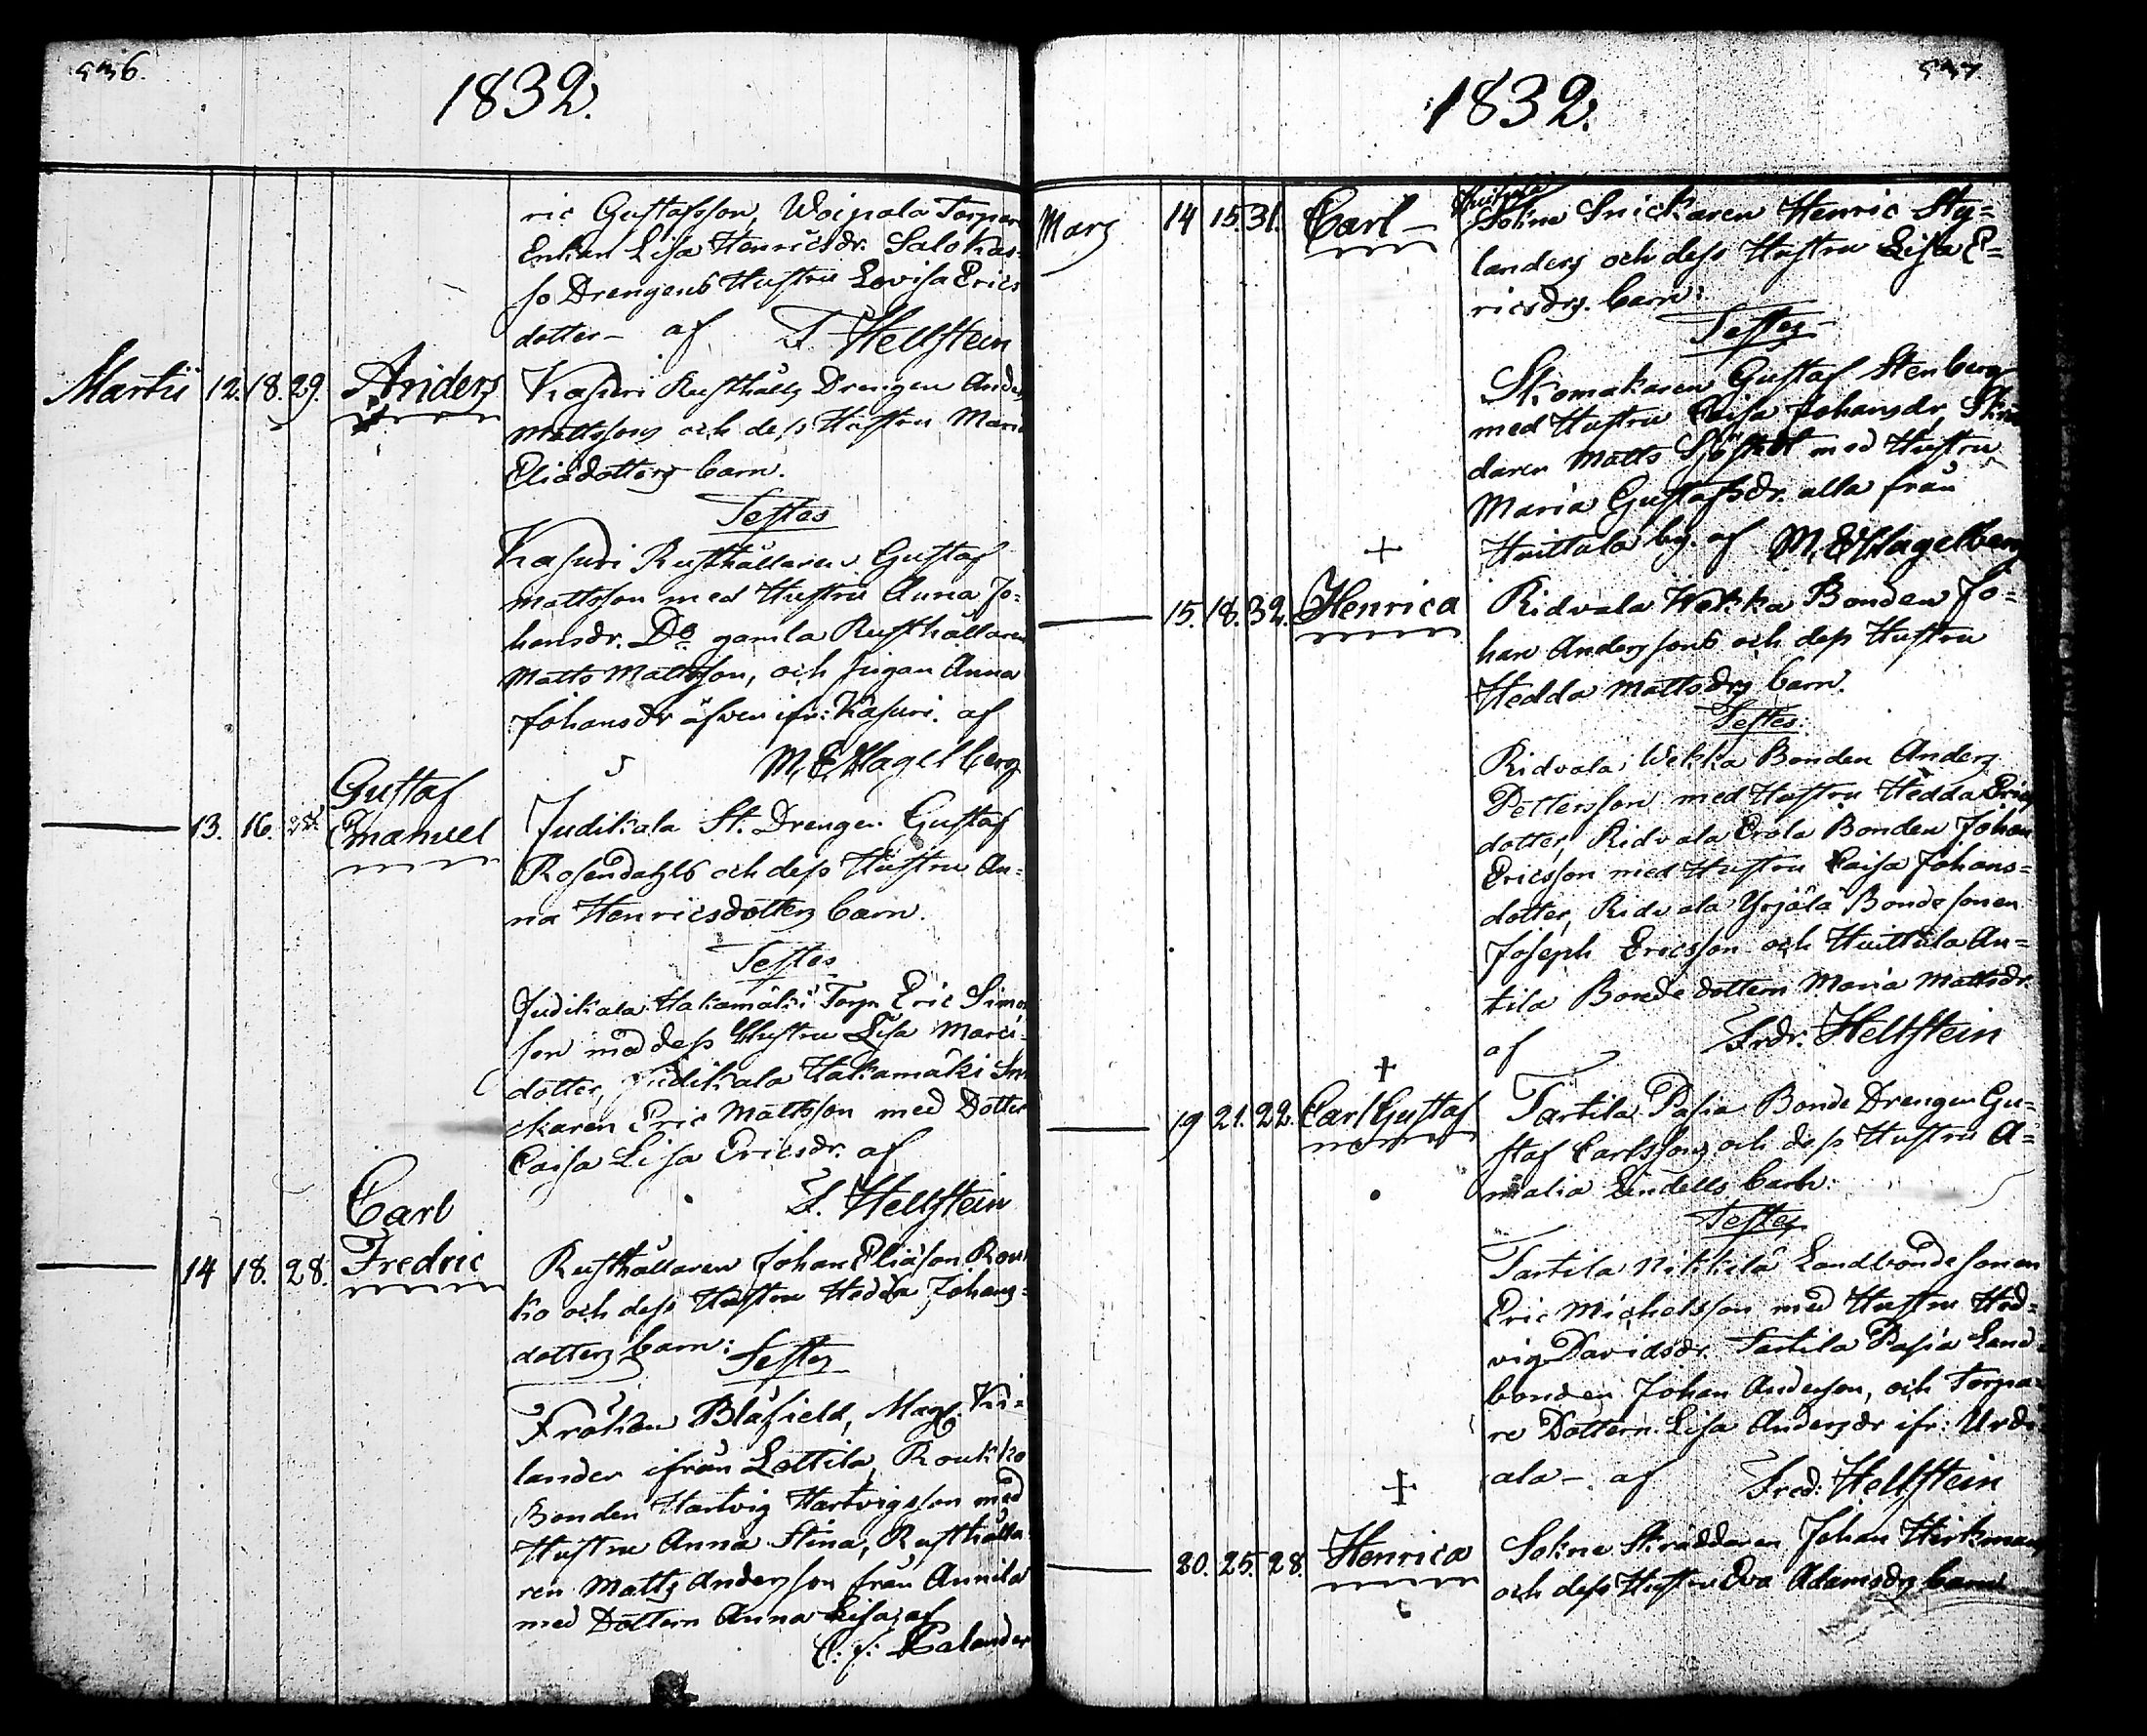 536.
1832.
ric Gustafsson, Woipala Torpare
Enkan Lisa Henricsdr. Salokas-
so Drengens Hustru Lovisa Erics
dotter – af F. Hellstein
Martii 12. 18. 29. Anders Kasuri Rusthålls Drengen Anders
Mattssons och dess Hustru Maria
Eliædotters barn.
Testes
Kasuri Rusthållaren Gustaf
Mattsson med Hustru Anna Jo=
hansdr. Do gamla Rusthållaren
Matts Mattsson, och pigan Anna
Johansdr äfven ifr: Kasuri. af
M. E. Hagelberg
Gustaf
— 13. 16. Emanuel Judikala St. Drengen Gustaf
Rosendahls och dess Hustru An=
na Henricsdotters barn.
Testes
Judikala Hakamäki Torp. Eric Simon
son med dess Hustru Lisa Marci-
dotter, Judikala Hakamäki Sni
ckaren Eric Mattsson med Dotter
Caisa Lisa Ericsdr. af
F. Hellstein
Carl
— 14 18. 28. Fredric Rusthållaren Johan Eliæson Rouk
ko och dess Hustru Hedda Johans-
dotters barn: Testes
Fröken Blåfield, Mag. Ki-
lander ifrån Lottila, Roukko
Bonden Hartvig Hartvigsson med
Hustru Anna Stina, Rusthålla
ren Matts Andersson från Annila
med Dottern Anna Lisa; af
C. J: Calander
537
1832.
Mars 14 15. 31. Carl – Huittula
Sokne Snickaren Henric Sty=
landers och dess Hustru Lisa E=
ricsdrs. barn:
Testes
Skomakaren Gustaf Stenberg
med Hustru Caisa Johansdr, Skräd
daren Matts Sjöstedt med Hustru
Maria Gustafsdr. alla från
Huittula by. af M. E. Hagelberg
+
— 15. 18. 32. Henrica Ridvala Wekka Bonden Jo=
han Anderssons och dess Hustru
Hedda Mattsdrs barn.
Testes:
Ridvala Wekka Bonden Anders
Pettersson med Hustru Hedda Erics
dotter, Ridvala Erola Bonden Johan
Ericsson med Hustru Caisa Johans=
dotter, Ridvala Yrjälä Bondesonen
Joseph Ericsson och Huittula An=
tila Bonde dottern Maria Mattsdr.
af Frdr. Hellstein
+
— 19 21. 22. Carl Gustaf Tartila Pasia Bonde Drengen Gu=
staf Carlssons och dess Hustru A=
malia Lindells barn:
Testes
Tartila Nikkilä Landbondesonen
Eric Michelsson med Hustru Hed=
vig Davidsdr. Tartila Pasia Land=
bonden Johan Anderson, och Torpa=
re Dottern Lisa Andersdr ifr: Urdi
ala – af Fred: Hellstein
+
— 20. 25. 28. Henrica Sokne Skräddaren Johan Hirkmans
och dess Hustru Eva Adamsdrs barn